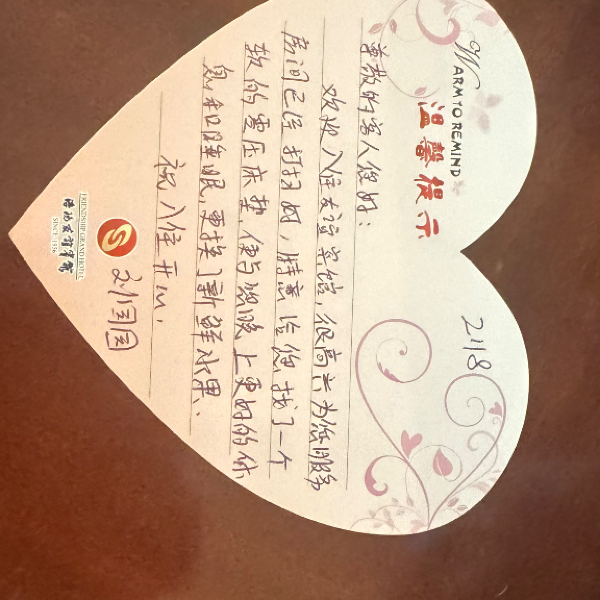 WARM TO REMIND
温馨提示
2118
尊敬的客人您好:
欢迎入住友谊宾馆,很高兴为您服务
房间已经打扫好,特意给您找了一个
软的零压床垫便与您晚上更好的休
息和睡眠,更换了新鲜水果、
祝入住开心,
刘园园
FRIENDSHIP GRAND HOTEL
SINCE 1956